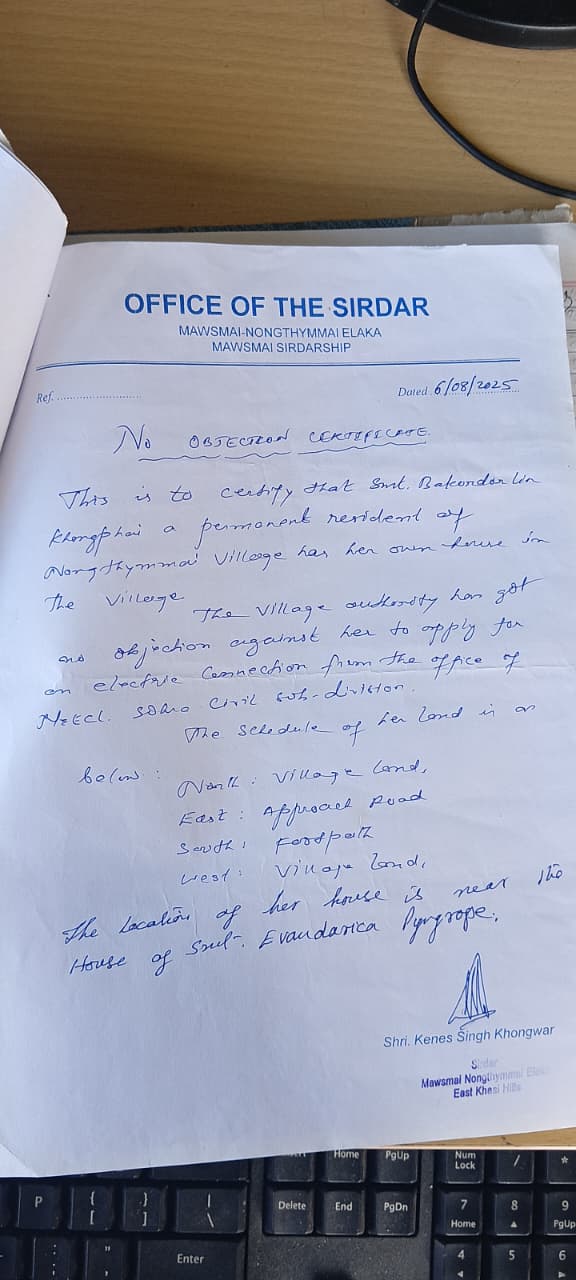 OFFICE OF THE SIRDAR
MAWSMAI-NONGTHYMMAI ELAKA
MAWSMAI SIRDARSHIP
Ref. ........................
Dated 6/08/2025
No OBJECTION CERTIFICATE.
This is to certify that Smt. Bakondor lin
Khongphai a permanent resident of
Nongthymmai Village has her own house in
The Village
The Village authority has got
no objection against her to apply for
an electric Connection from the office of
MeECL. Sohra Civil sub-division.
The Schedule of her Land is as
below :
North : Village Land,
East : Approach Road
South : Footpath
West : Village Land,
The Location of her house is near the
House of Smt. Evaudarica Pyngrope.
Shri. Kenes Singh Khongwar
Sirdar
Mawsmai Nongthymmai Elaka
East Khasi Hills
P
{
[
}
]
|
\
:
;
"
'
Enter
Home
PgUp
Delete
End
PgDn
Num
Lock
/
*
7
Home
8
9
PgUp
4
5
6